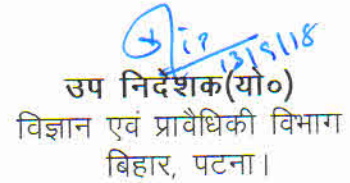 13/9/18
उप निर्देशक(यो०)
विज्ञान एवं प्रावैधिकी विभाग
बिहार, पटना।